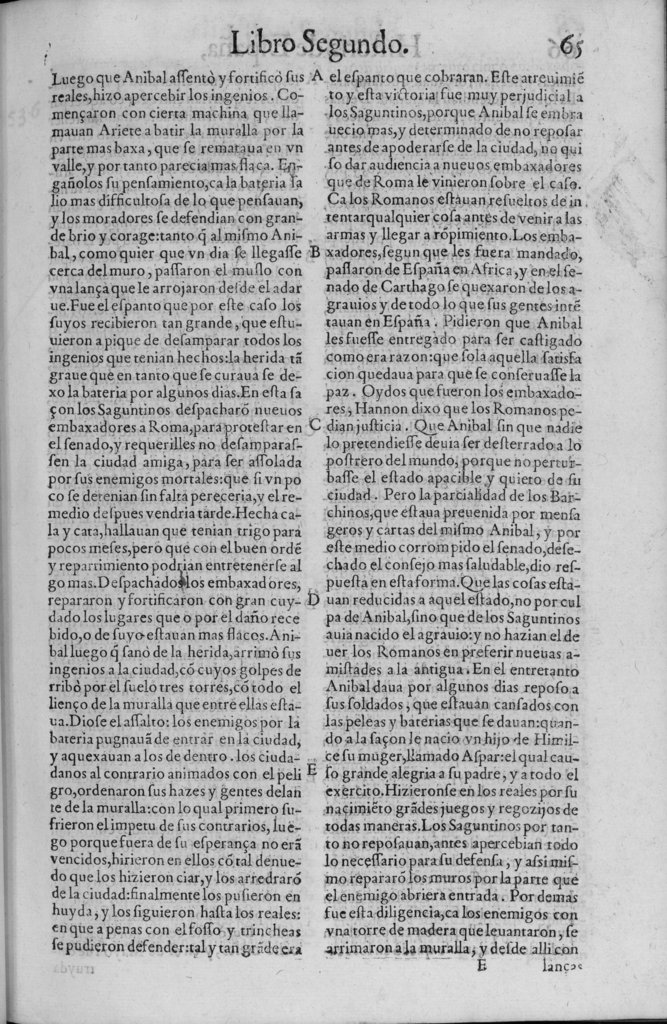 Libro Segundo. 65
Luego que Anibal assentò y fortificó sus
reales, hizo apercebir los ingenios. Co-
mençaron con cierta machina que lla-
mauan Ariete a batir la muralla por la
parte mas baxa, que se remataua en vn
valle, y por tanto parecia mas flaca. En-
gañolos su pensamiento, ca la bateria sa
lio mas difficultosa de lo que pensauan,
y los moradores se defendian con gran-
de brio y corage: tanto q̃ al mismo Ani-
bal, como quier que vn dia se llegasse
cerca del muro, passaron el muslo con
vna lança que le arrojaron desde el adar
ue. Fue el espanto que por este caso los
suyos recibieron tan grande, que estu-
uieron a pique de desamparar todos los
ingenios que tenian hechos: la herida tã
graue que en tanto que se curaua se de-
xo la bateria por algunos dias. En esta sa
çon los Saguntinos despacharõ nueuos
embaxadores a Roma, para protestar en
el senado, y requerilles no desamparas-
sen la ciudad amiga, para ser assolada
por sus enemigos mortales: que si vn po
co se detenian sin falta pereceria, y el re-
medio despues vendria tarde. Hecha ca-
la y cata, hallauan que tenian trigo para
pocos meses, pero que con el buen ordẽ
y repartimiento podrian entretenerse al
go mas. Despachados los embaxadores,
repararon y fortificaron con gran cuy-
dado los lugares que o por el daño rece
bido, o de suyo estauan mas flacos. Ani-
bal luego q̃ sanó de la herida, arrimò sus
ingenios a la ciudad, cõ cuyos golpes de
rribò por el suelo tres torres, cõ todo el
lienço de la muralla que entre ellas esta-
ua. Diose el assalto: los enemigos por la
bateria pugnauã de entrar en la ciudad,
y aquexauan a los de dentro. los ciuda-
danos al contrario animados con el peli
gro, ordenaron sus hazes y gentes delan
te de la muralla: con lo qual primero su-
frieron el impetu de sus contrarios, lue-
go porque fuera de su esperança no erã
vencidos, hirieron en ellos cõ tal denue-
do que los hizieron ciar, y los arredrarõ
de la ciudad: finalmente los pusieron en
huyda, y los siguieron hasta los reales:
en que a penas con el fosso y trincheas
se pudieron defender: tal y tan grãde era
A
B
C
D
E
el espanto que cobraran. Este atreuimiẽ
to y esta victoria fue muy perjudicial a
los Saguntinos, porque Anibal se embra
uecio mas, y determinado de no reposar
antes de apoderarse de la ciudad, no qui
so dar audiencia a nueuos embaxadores
que de Roma le vinieron sobre el caso.
Ca los Romanos estauan resueltos de in
tentar qualquier cosa antes de venir a las
armas y llegar a rõpimiento. Los emba-
xadores, segun que les fuera mandado,
passaron de España en Africa, y en el se-
nado de Carthago se quexaron de los a-
grauios y de todo lo que sus gentes intẽ
tauan en España. Pidieron que Anibal
les fuesse entregado para ser castigado
como era razon: que sola aquella satisfa
cion quedaua para que se conseruasse la
paz. Oydos que fueron los embaxado-
res, Hannon dixo que los Romanos pe-
dian justicia. Que Anibal sin que nadie
lo pretendiesse deuia ser desterrado a lo
postrero del mundo, porque no pertur-
basse el estado apacible y quieto de su
ciudad. Pero la parcialidad de los Bar-
chinos, que estaua preuenida por mensa
geros y cartas del mismo Anibal, y por
este medio corrompido el senado, dese-
chado el consejo mas saludable, dio res-
puesta en esta forma. Que las cosas esta-
uan reducidas a aquel estado, no por cul
pa de Anibal, sino que de los Saguntinos
auia nacido el agrauio: y no hazian el de
uer los Romanos en preferir nueuas a-
mistades a la antigua. En el entretanto
Anibal daua por algunos dias reposo a
sus soldados, que estauan cansados con
las peleas y baterias que se dauan: quan-
do a la saçon le nacio vn hijo de Himil-
ce su muger, llamado Aspar: el qual cau-
so grande alegria a su padre, y a todo el
exercito. Hizieronse en los reales por su
nacimiẽto grãdes juegos y regozijos de
todas maneras. Los Saguntinos por tan-
to no reposauan, antes apercebian todo
lo necessario para su defensa, y assi mis-
mo repararõ los muros por la parte que
el enemigo abriera entrada. Por demas
fue esta diligencia, ca los enemigos con
vna torre de madera que leuantaron, se
arrimaron a la muralla, y desde alli con
E lanças